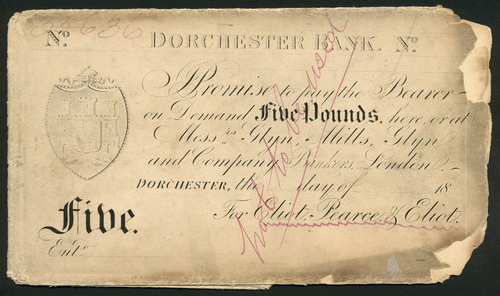 No 35636 DORCHESTER BANK. No
I Promise to pay the Bearer
on Demand Five Pounds, here, or at
Messrs Glyn, Mills, Glyn
and Company Bankers London.
DORCHESTER, the day of 18
Five. For Eliot, Pearce, & Eliot.
Entd
not to be used